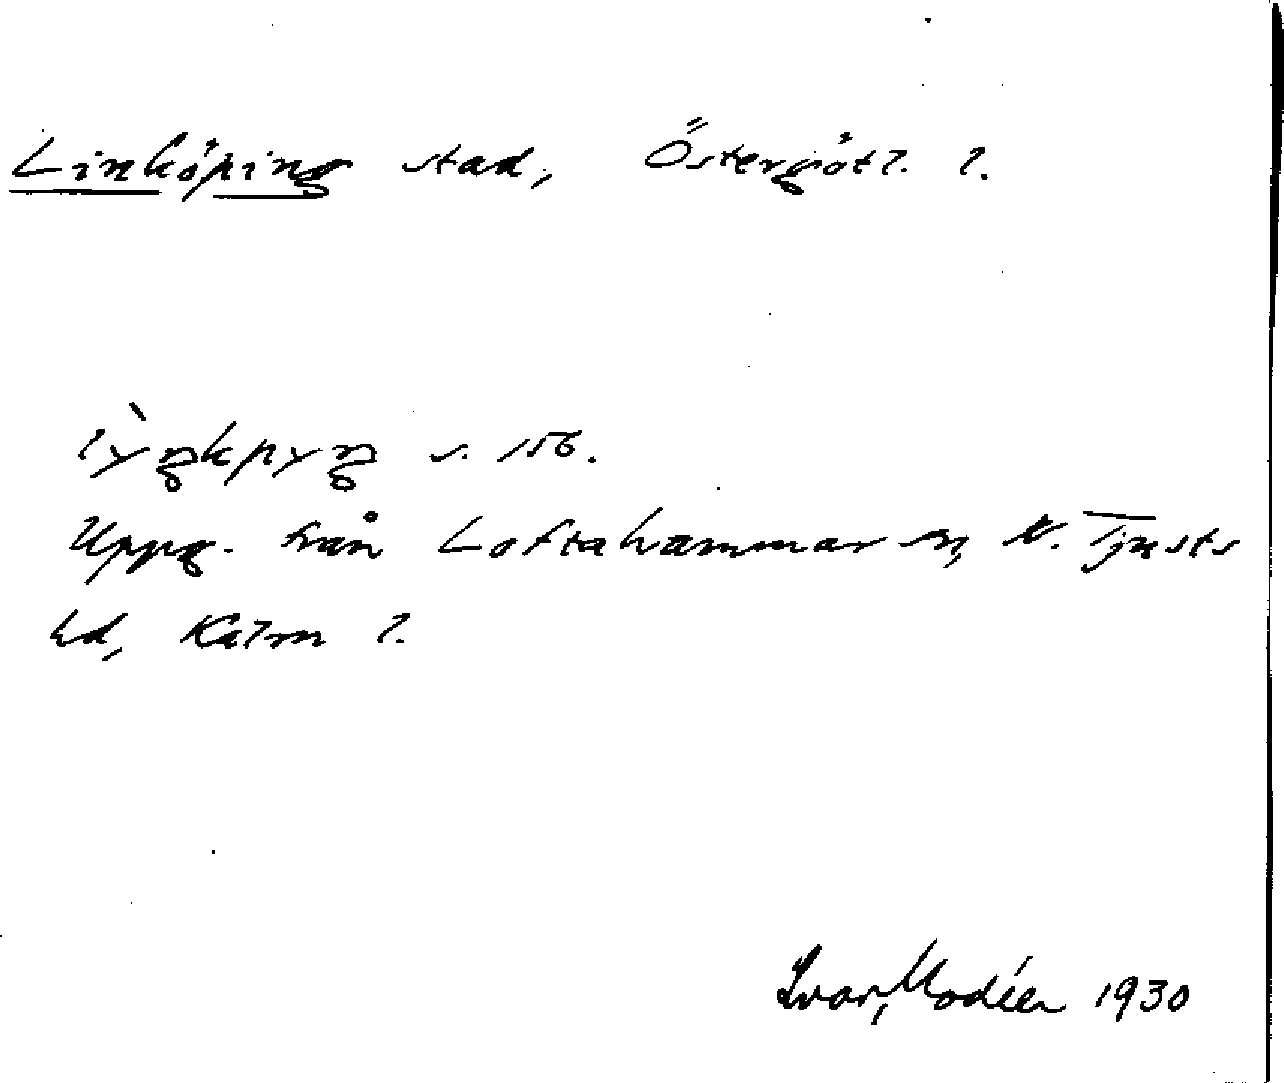 Linköping stad, Östergötl. l.
lỳŋkpyŋ s. 156.
Uppg. från Loftahammar sn, N. Tjusts
hd, Kalm l.
Ivar Modéer 1930